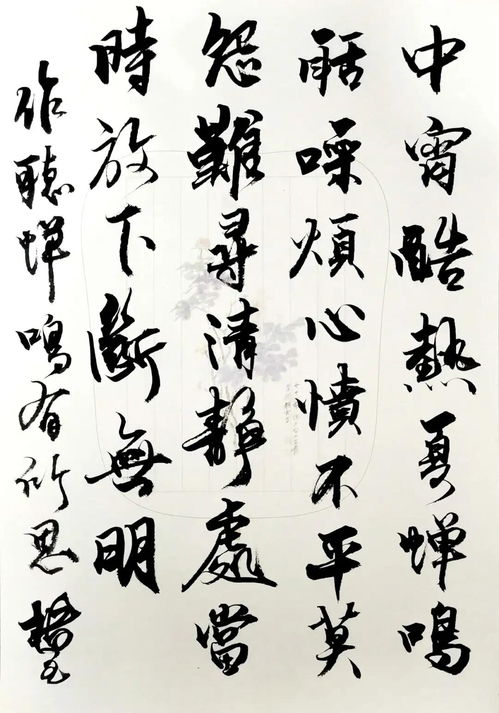 中宵酷熱夏蝉鳴
聒噪煩心憤不平莫
怨難尋清靜處當
時放下斷無明
作聽蝉鳴有所思